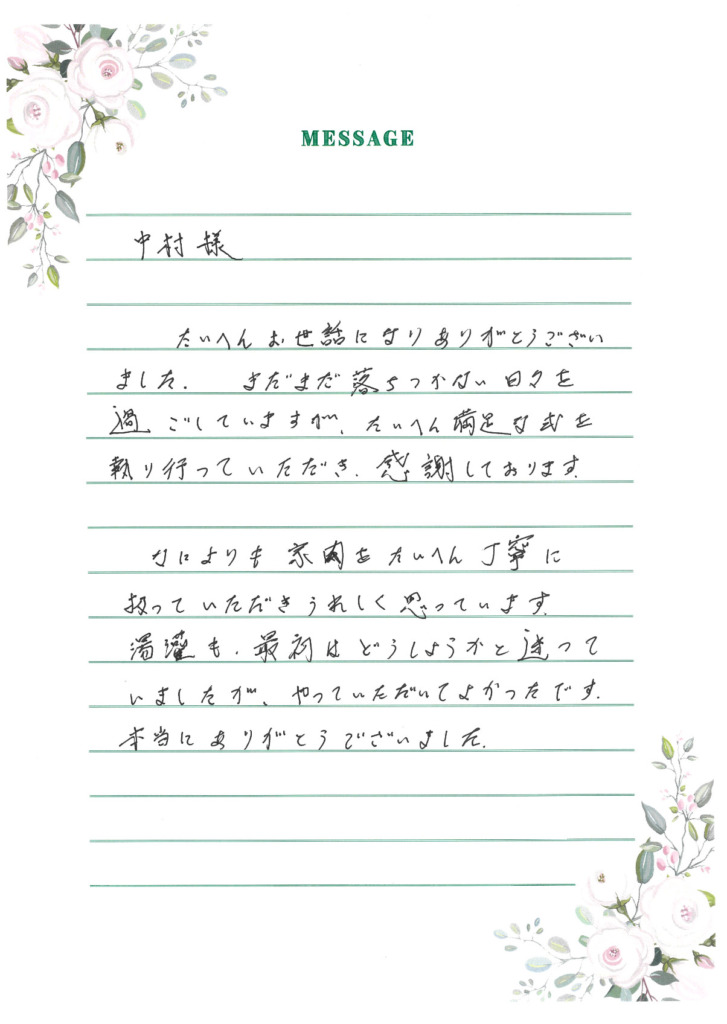 MESSAGE
中村様
たいへんお世話になりありがとうござい
ました. まだまだ落ちつかない日々を
過ごしていますが、たいへん満足な式を
執り行っていただき、感謝しております.
なによりも 家内をたいへん丁寧に
扱っていただきうれしく思っています.
湯灌も、最初はどうしようかと迷って
いましたが、やっていただいてよかったです.
本当にありがとうございました.